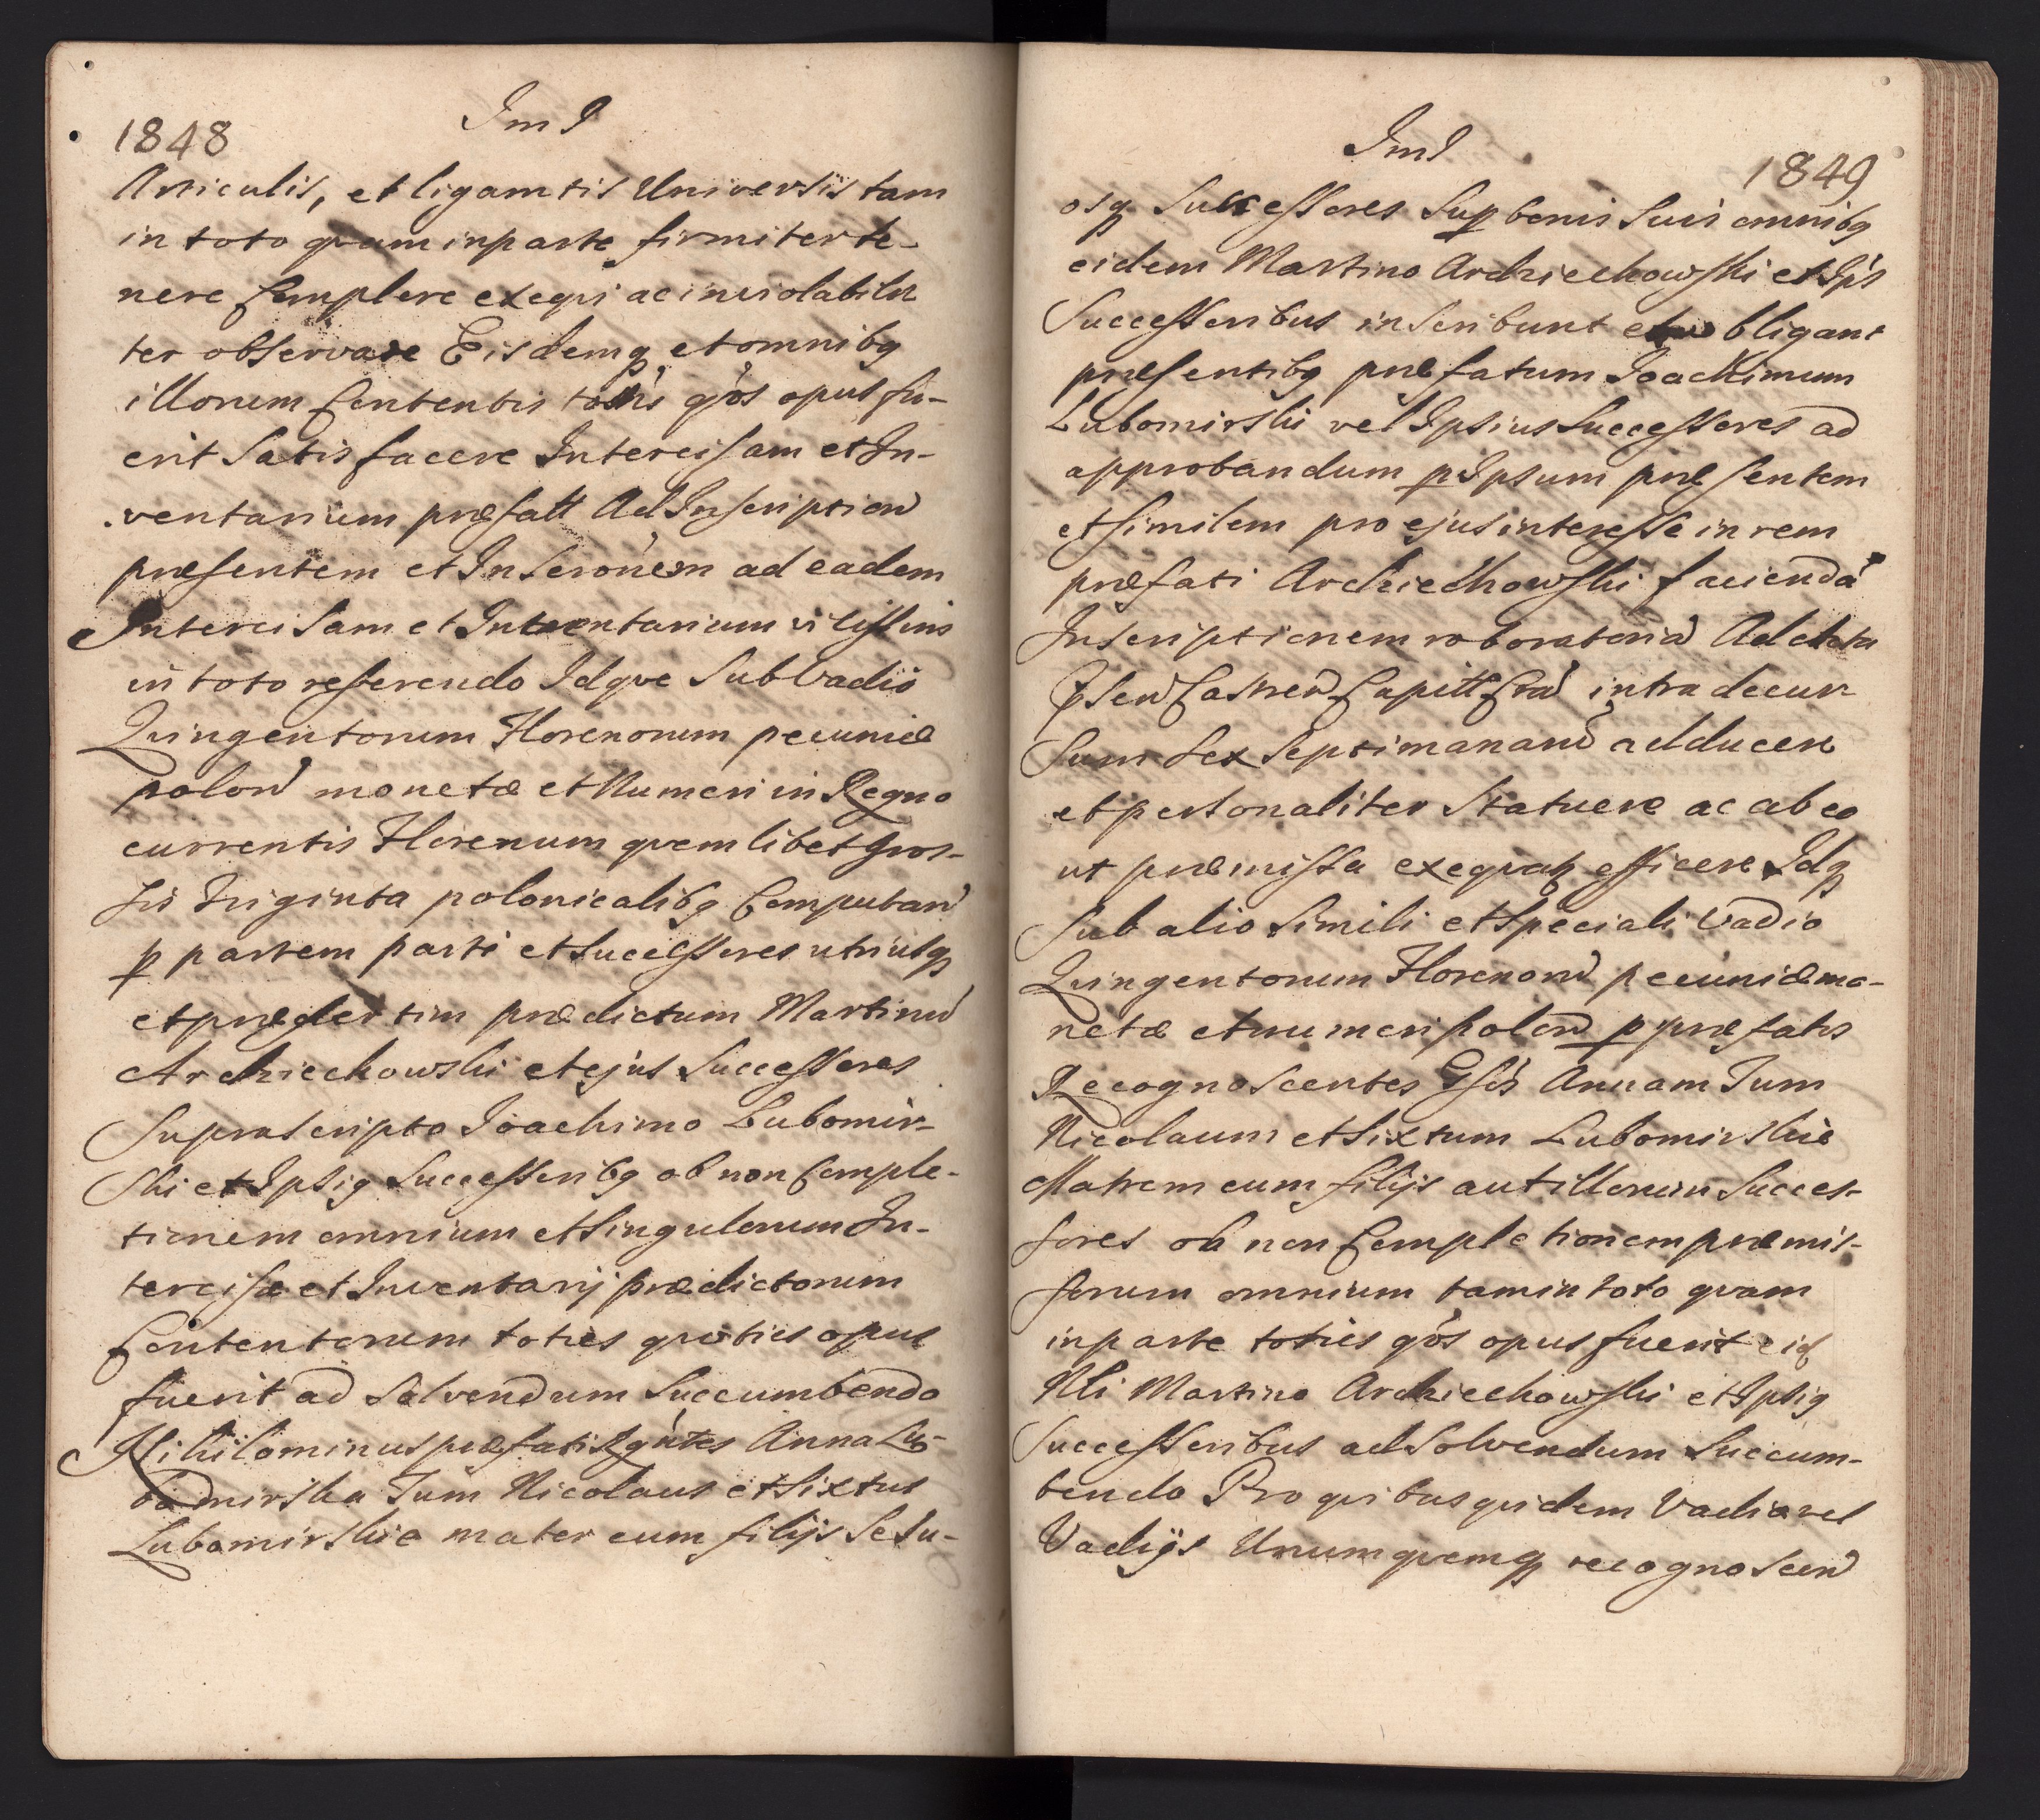 1848
Im I
Articulis, et ligamtis Universis tam
in toto qvam in parte firmiter te-
nere Complere exeqvi ac inviolabili
ter observare Eisdemq, et omnibq
illorum Contentis toties qós opus fu-
erit Satisfacere Intercisam et In-
ventarium præfatt Ad Inscription
præsentem et Inscrönem ad eadem
Intercisam et Inventarium vilissim
in toto referendo Idqve Sub Vadio
Qvingentorum Florenorum pecuniæ
polon monetæ et Numeri in Regno
currentis Florenum qvemlibet Gros-
sis Triginta polonicalibq Computan
p partem parti et Successores utriusq
et præsertim prædictum Martinu
Archiechowski et ejus Successores
Suprascripto Joachimo Lubomir-
ski et Ipsiq Successoribq ob non Comple-
tionem omnium et Singulorum In-
tercisæ et Inventarij prædictorum
Contentorum toties qvoties opus
fuerit ad Solvendum Succumbendo
Nihilominus præfati Rgntes Anna Lu-
bomirska Tum Nicolaus et Sixtus
Lubomirskie mater cum filijs Se Su-
Im I
1849
osq Successores Sup bonis Suis omnibq
eidem Martino Archiechowski et Ips
Successoribus inscribunt et obligant
præsentibq præfatum Joachimum
Lubomirski vel Ipsius Successores ad
approbandum p Ipsum præsentem
et Similem pro ejus interesse in rem
præfati Archiechowski facienda
Inscriptionem roboratoria Ad Acta
Castren Capitt Cra intra decur
Sum Sex Septimanaru adducere
et personaliter Statuere ac ab eo
ut præmissa exeqvatq efficere Idq
Sub alio Simili et Speciali Vadio
Qvingentorum Florenoru pecuniæ mo-
netæ et numeri polon p præfatos
Recognoscentes Gsós Annam Tum
Nicolaum et Sixtum Lubomirskie
Matrem cum filijs aut illorum Succes-
sores ob non Completionem præmis-
sorum omnium tam in toto qvam
in parte toties qós opus fuerit eid
Nli Martino Archiechowski et Ipsiq
Successoribus ad Solvendum Succum-
bendo Pro qvibus qvidem Vadio vel
Vadijs Unumqvemq recognoscen